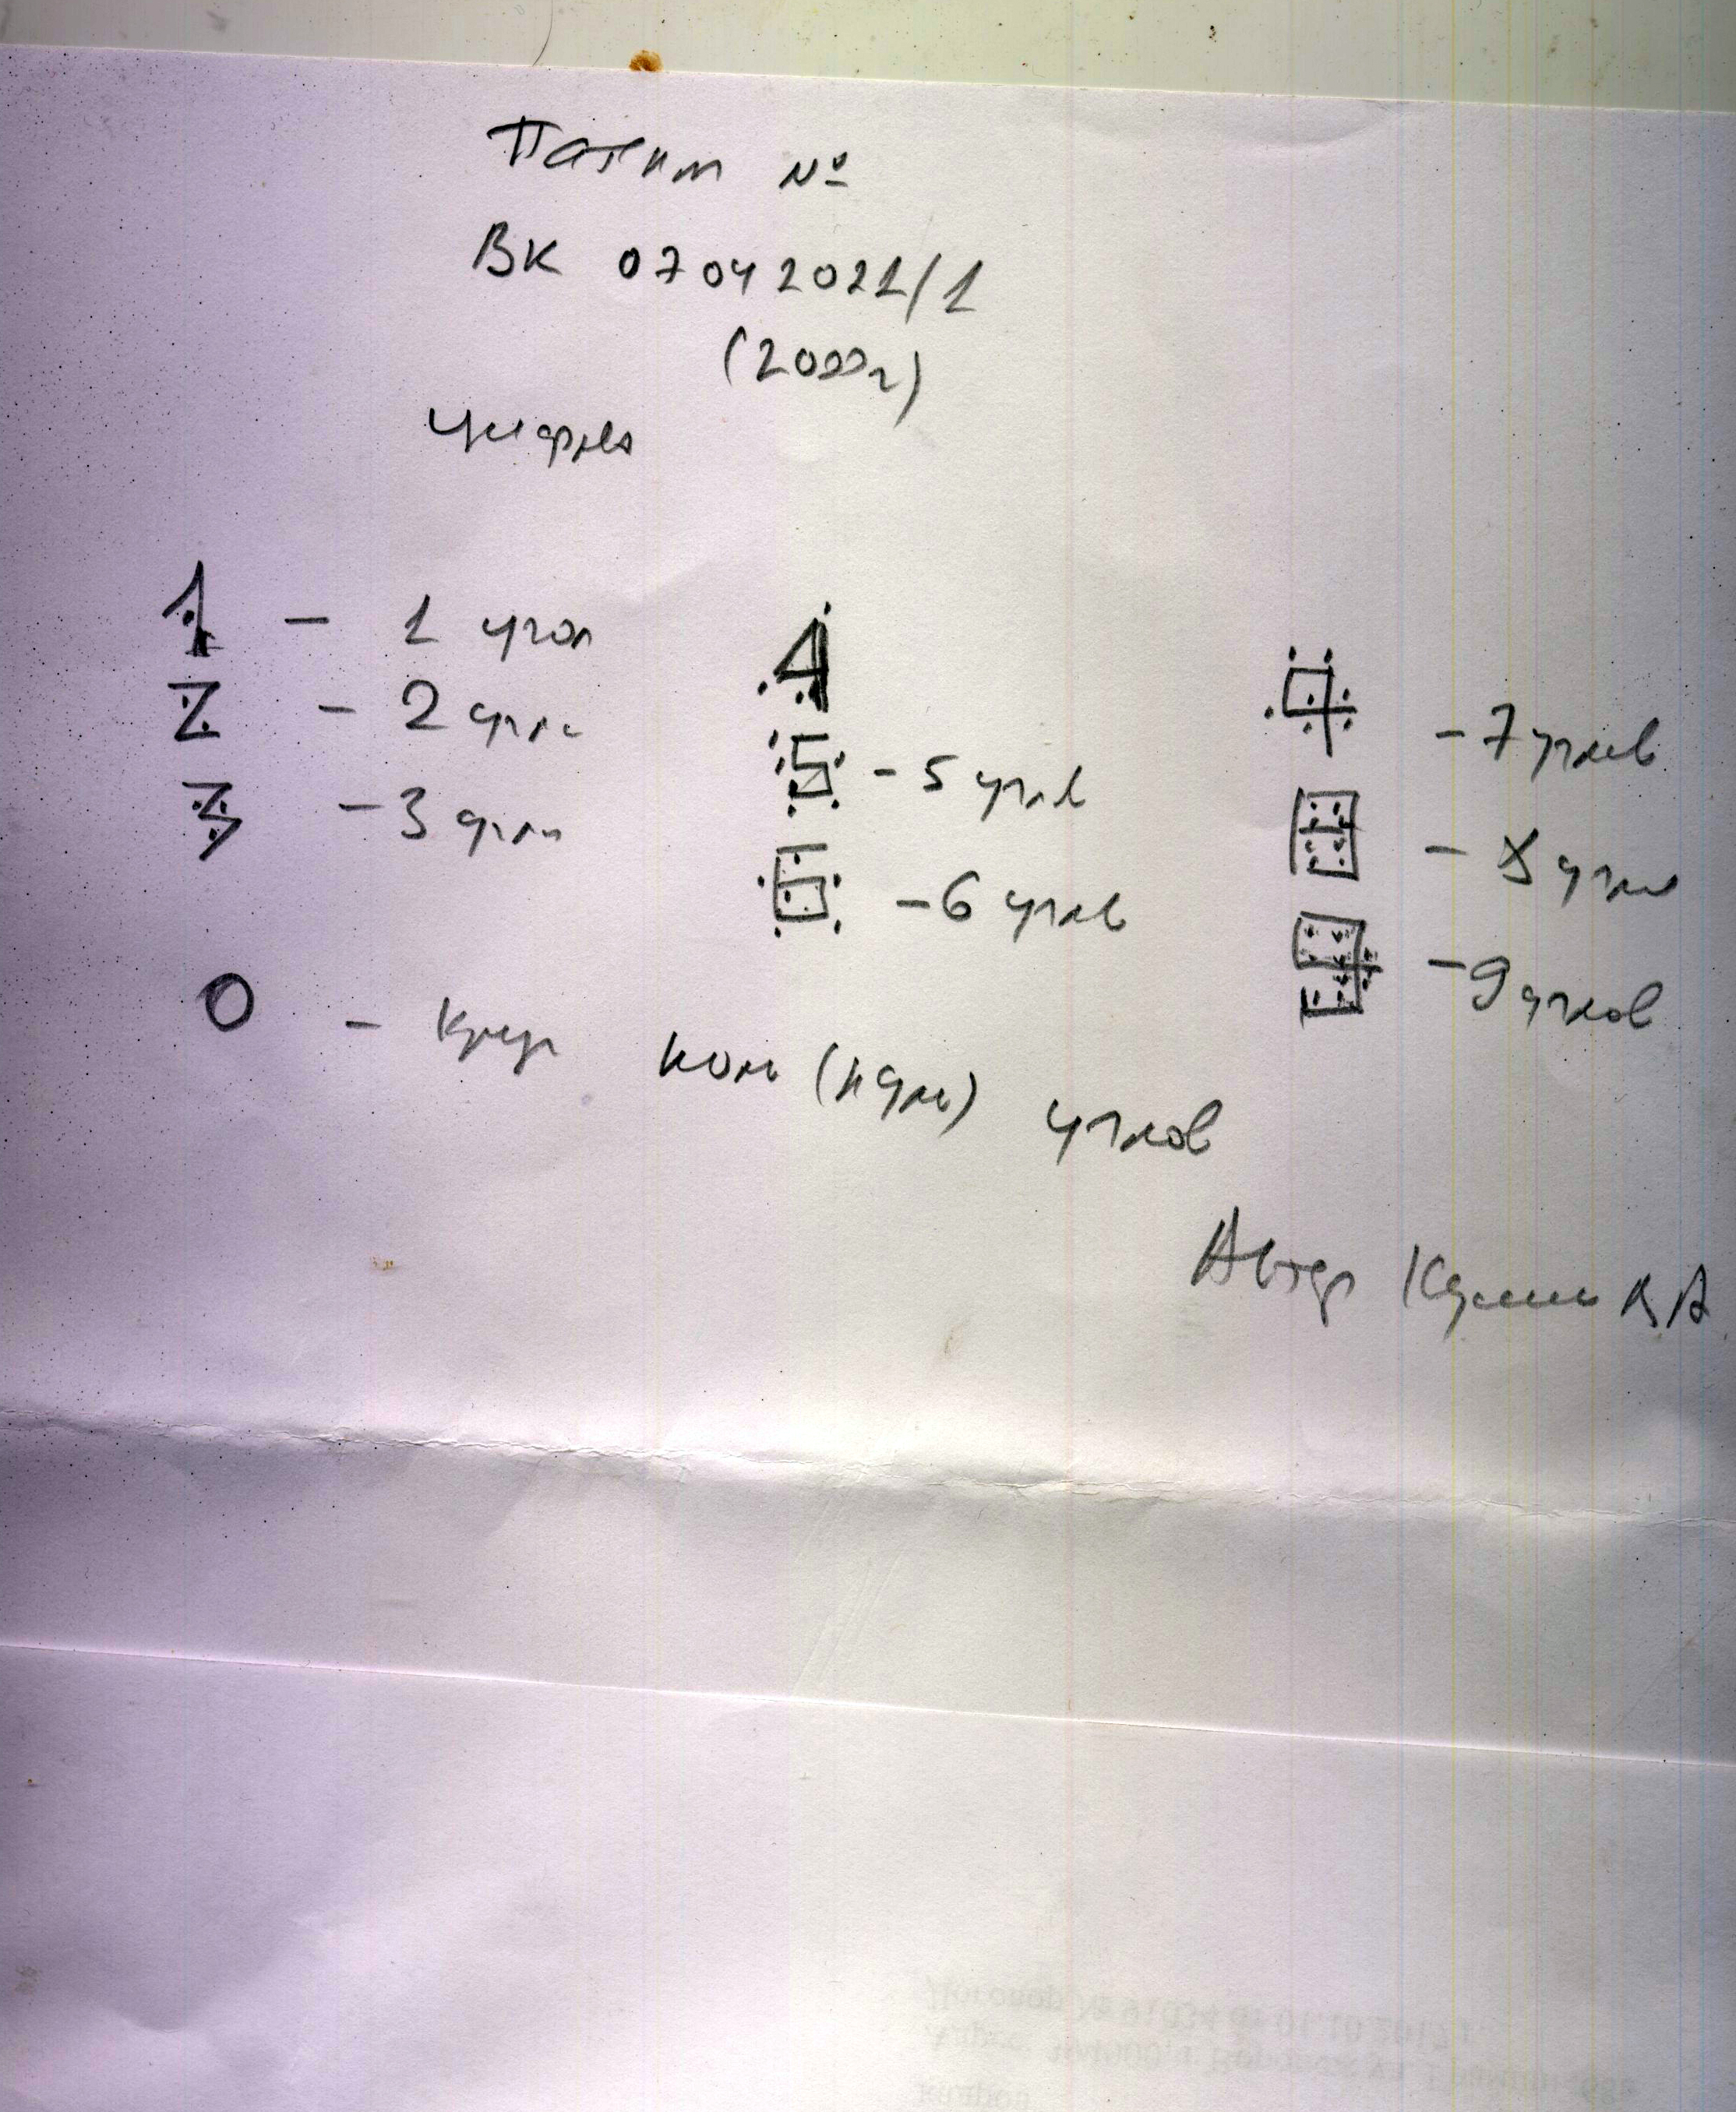 Патент №
ВК 07042021/1
(2000г)
Цифры
1 – 1 угол
2 – 2 угла
3 – 3 угла
0 – круг ноль (нуль) углов
4
5 – 5 углов
6 – 6 углов
7 – 7 углов
8 – 8 углов
9 – 9 углов
Автор В А